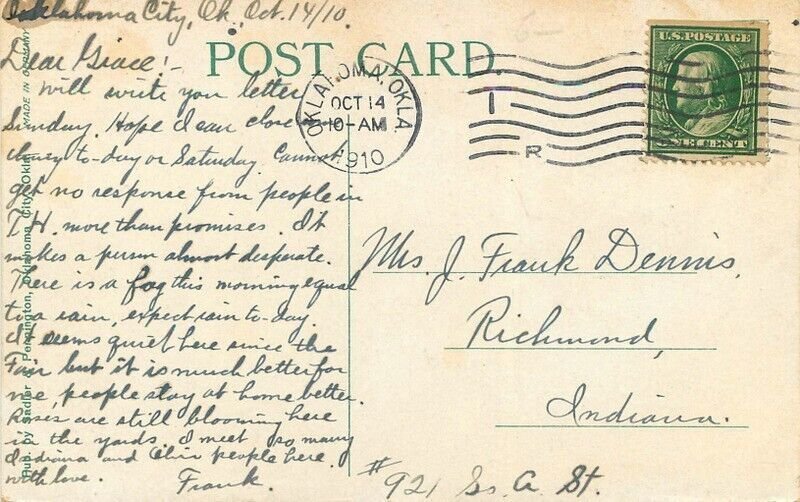 Oklahoma City, Ok. Oct. 14/10.
Dear Grace!-
will write you letter
Sunday. Hope I can close
to-day or Saturday. Cannot
get no response from people in
T.H. more than promises. It
makes a person almost desperate.
There is a fog this morning equal
to a rain, expect rain to-day.
It seems quiet here since the
Fair but it is much better for
me, people stay at home better.
Roses are still blooming here
in the yards. I meet so many
Indiana and Ohio people here.
with love. Frank.
POST CARD.
OKLAHOMA, OKLA
OCT 14
10-AM
1910
I
R
U.S. POSTAGE
1 CENT 1
Mrs. J. Frank Dennis,
Richmond,
Indiana.
# 921 So. A St.
Pub. by Sadler & Pennington, Oklahoma City, Okla.
MADE IN GERMANY